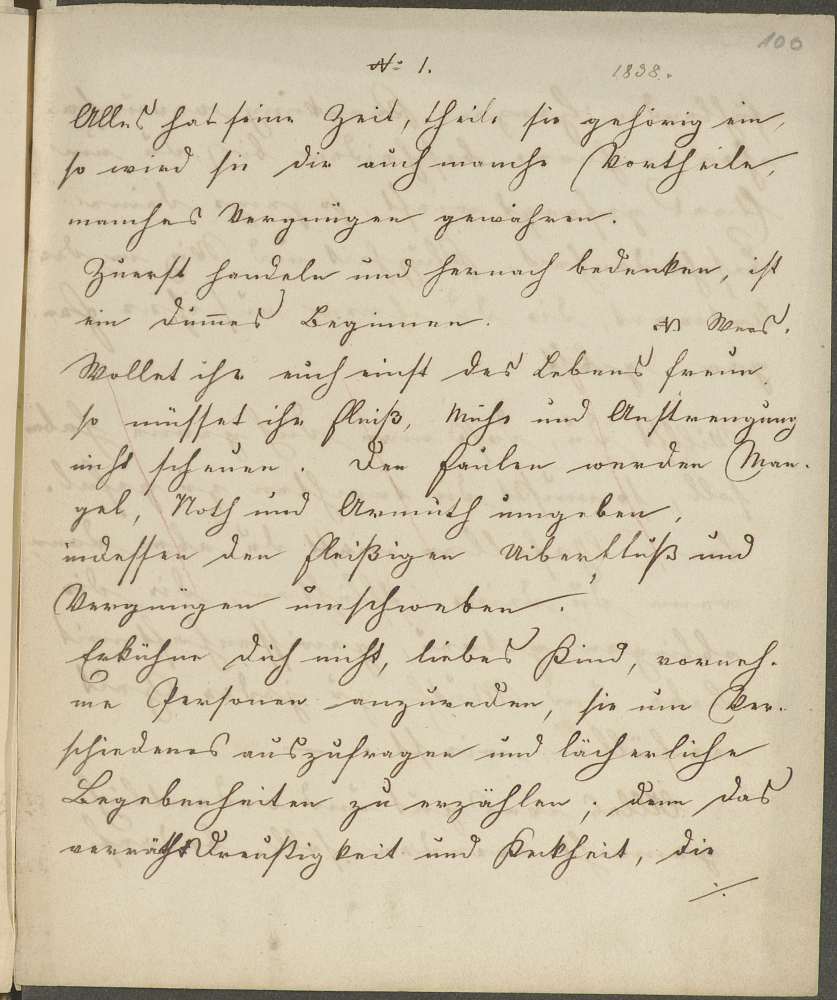 100
No 1.
1838.
Alles hat seine Zeit, theile sie gehörig ein,
so wird sie dir auch manche Vortheile,
manches Vergnügen gewähren.
Zuerst handeln und hernach bedenken, ist
ein dum̅es Beginnen.
Wollet ihr euch einst des Lebens freun
so müsset ihr Fleiß, Mühe und Anstrengung
nicht scheuen. Den Faulen werden Man-
gel, Noth und Armuth umgeben,
indessen den Fleißigen Uiberfluß und
Vergnügen umschweben.
Erkühne dich nicht, liebes Kind, vorneh-
me Personen anzureden, sie um Ver-
schiedenes auszufragen und lächerliche
Begebenheiten zu erzählen; denn das
verräth Dreustigkeit und Keckheit, die
./.